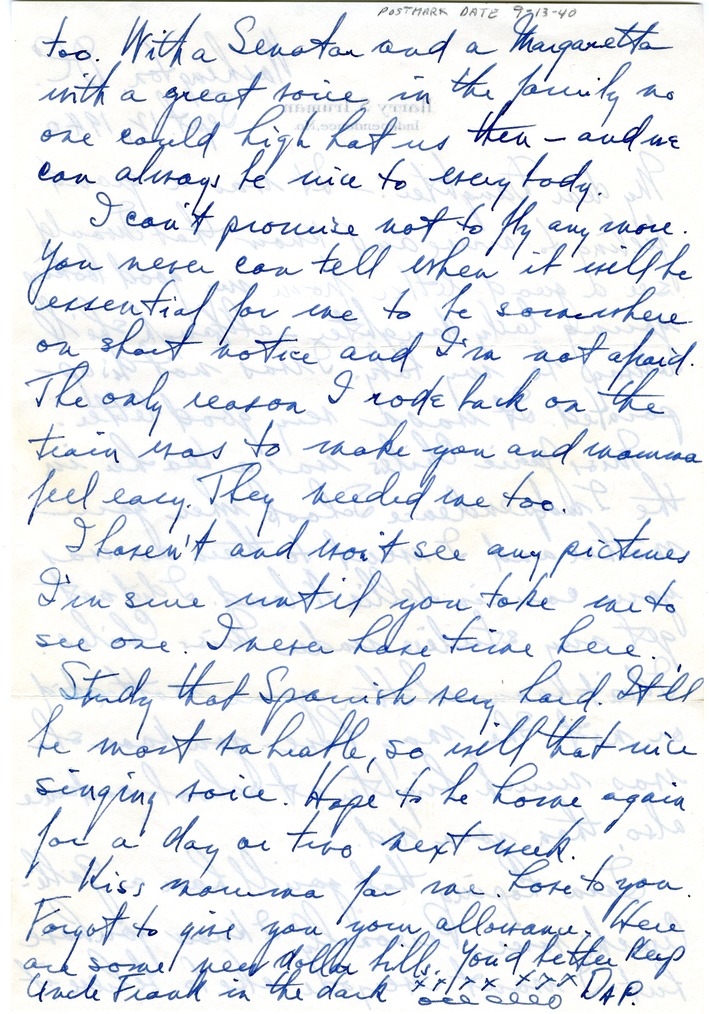 POSTMARK DATE 9-13-40
too. With a Senator and a Margaretta
with a great voice in the family no
one could high hat us then – and we
can always be nice to everybody.
I can't promise not to fly any more.
You never can tell when it will be
essential for me to be somewhere
on short notice and I'm not afraid.
The only reason I rode back on the
train was to make you and mamma
feel easy. They needed me too.
I haven't and won't see any pictures
I'm sure until you take me to
see one. I never have time here.
Study that Spanish very hard. It'll
be most valuable, so will that nice
singing voice. Hope to be home again
for a day or two next week.
Kiss mamma for me. Love to you.
Forgot to give you your allowance. Here
are some new dollar bills. You'd better keep
Uncle Frank in the dark xx xx xxx DAD.
ooo oooo